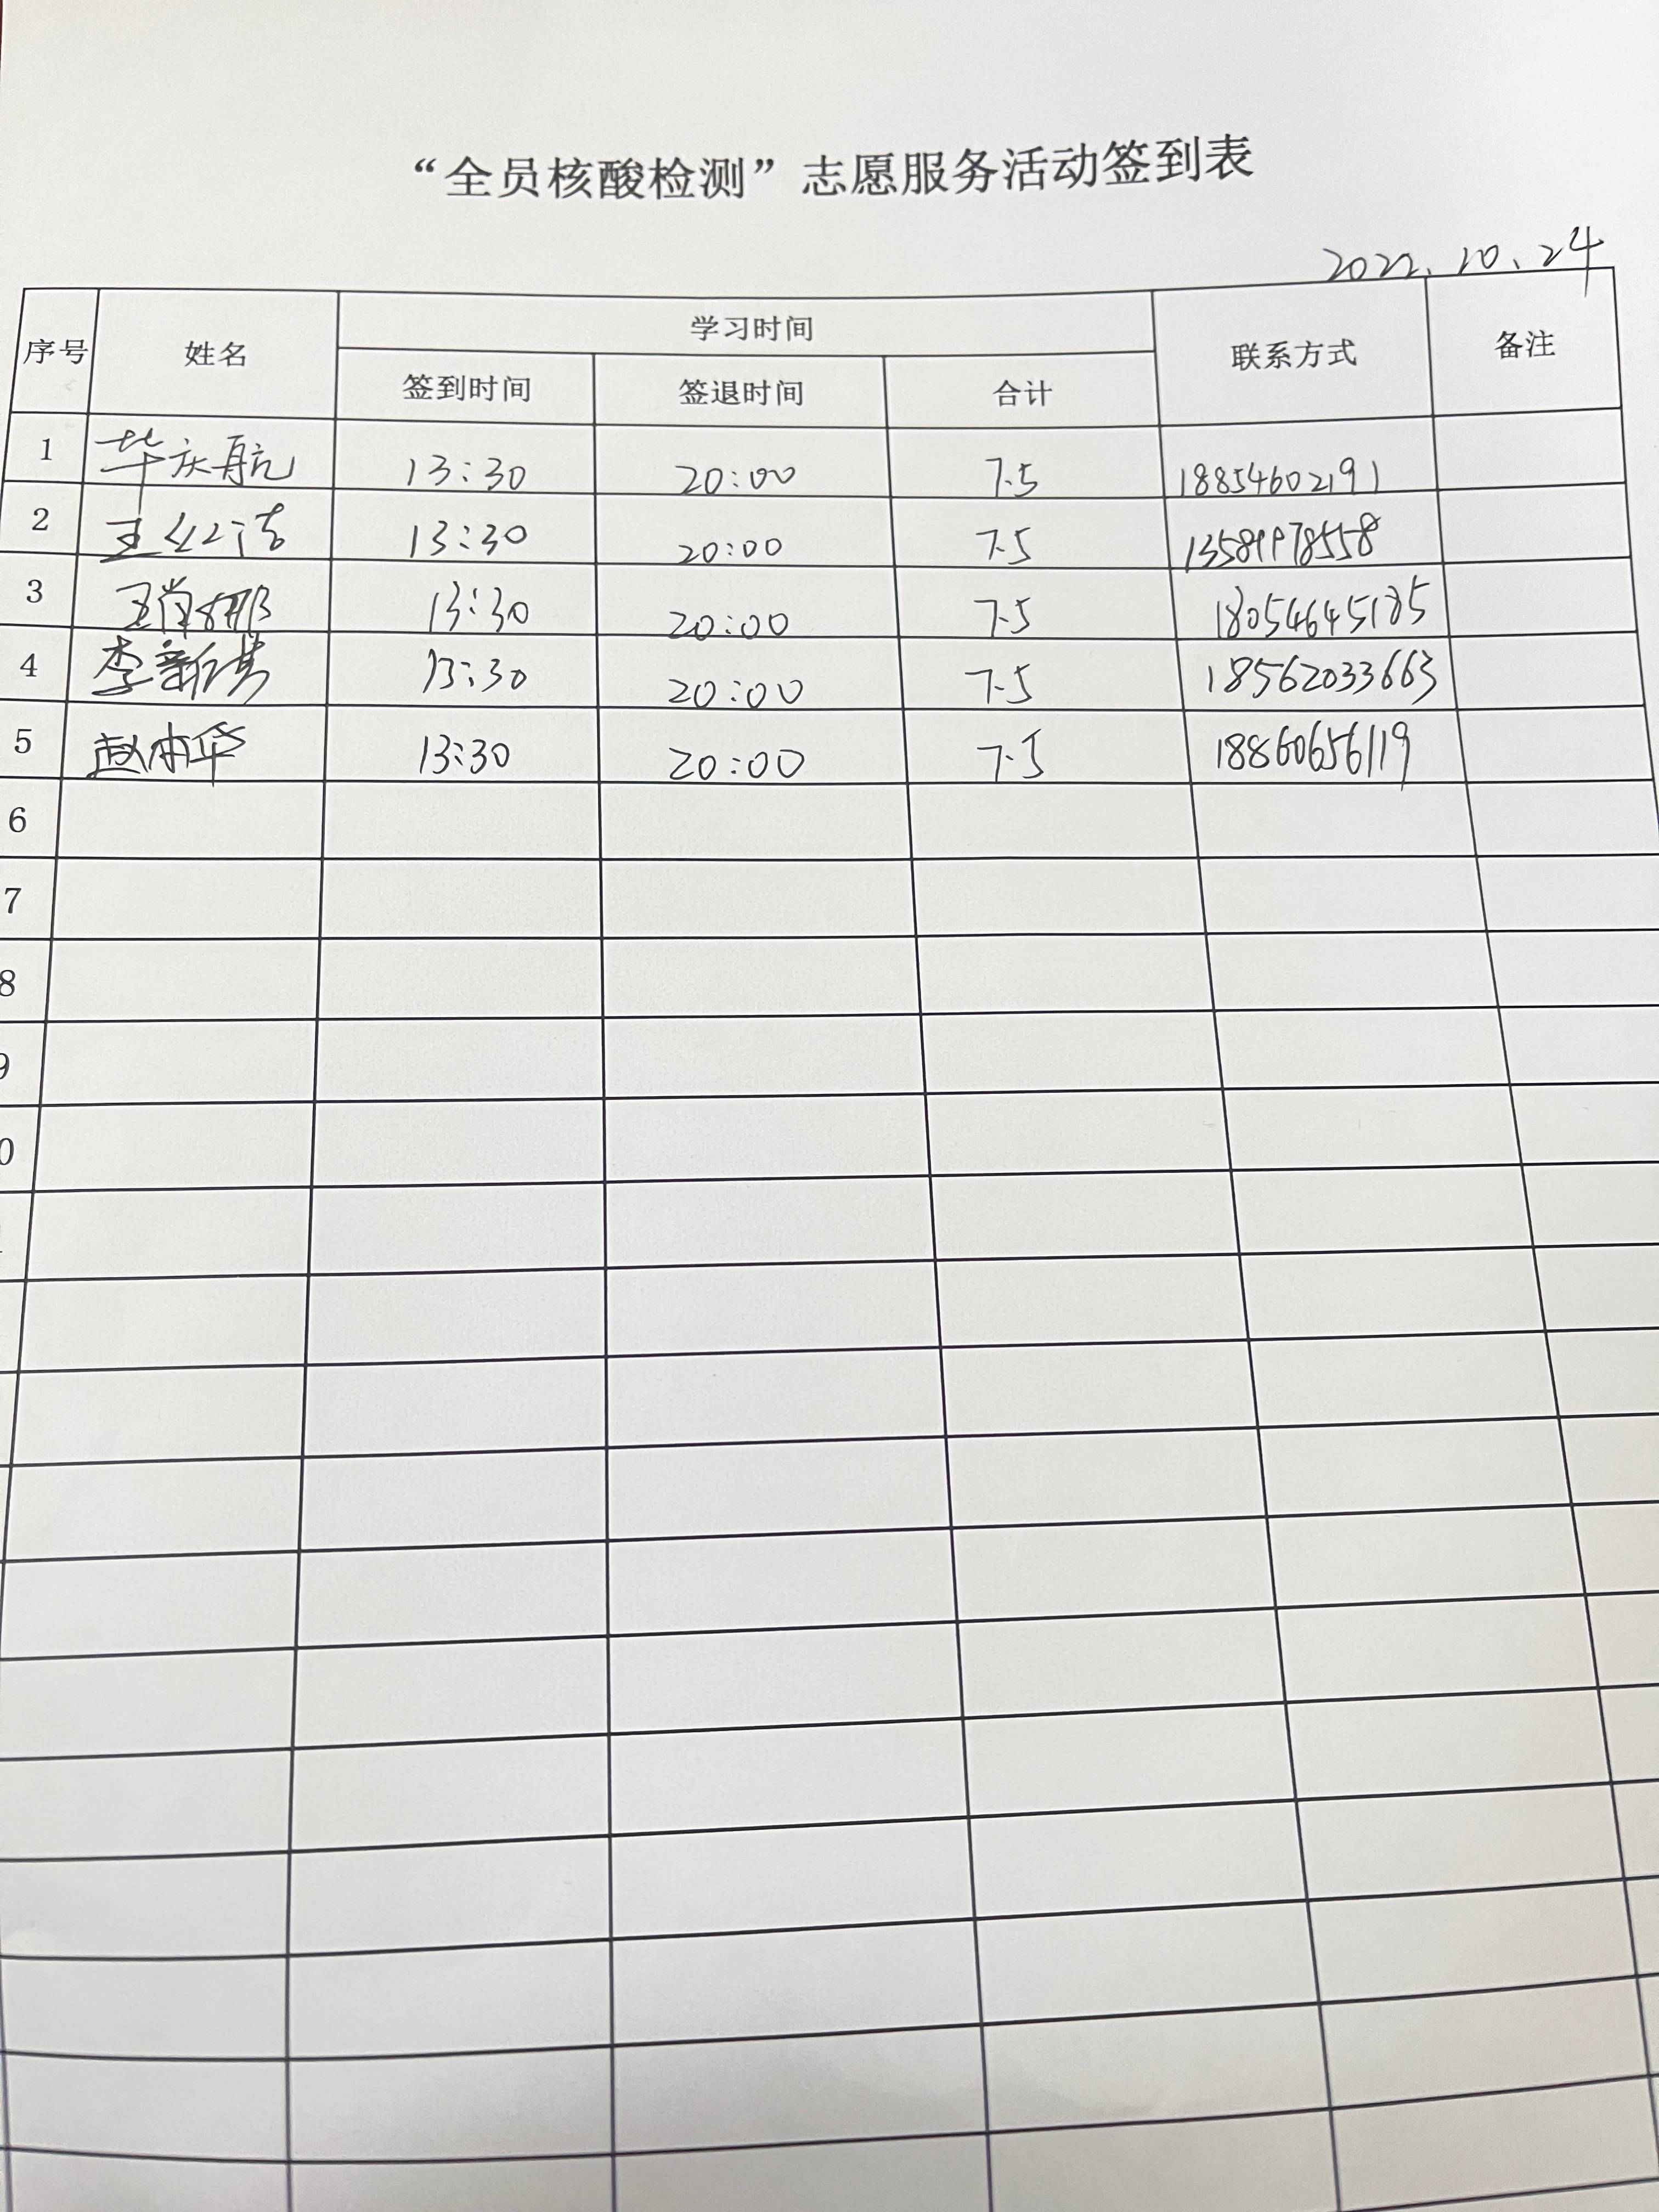 “全员核酸检测”志愿服务活动签到表
2022.10.24
序号 姓名 学习时间 联系方式 备注
签到时间 签退时间 合计
1 毕庆航 13:30 20:00 7.5 18854602191
2 王 13:30 20:00 7.5 13589978558
3 王肖娜 13:30 20:00 7.5 18054645185
4 李新 13:30 20:00 7.5 18562033663
5 赵 华 13:30 20:00 7.5 18860656119
6
7
8
9
0